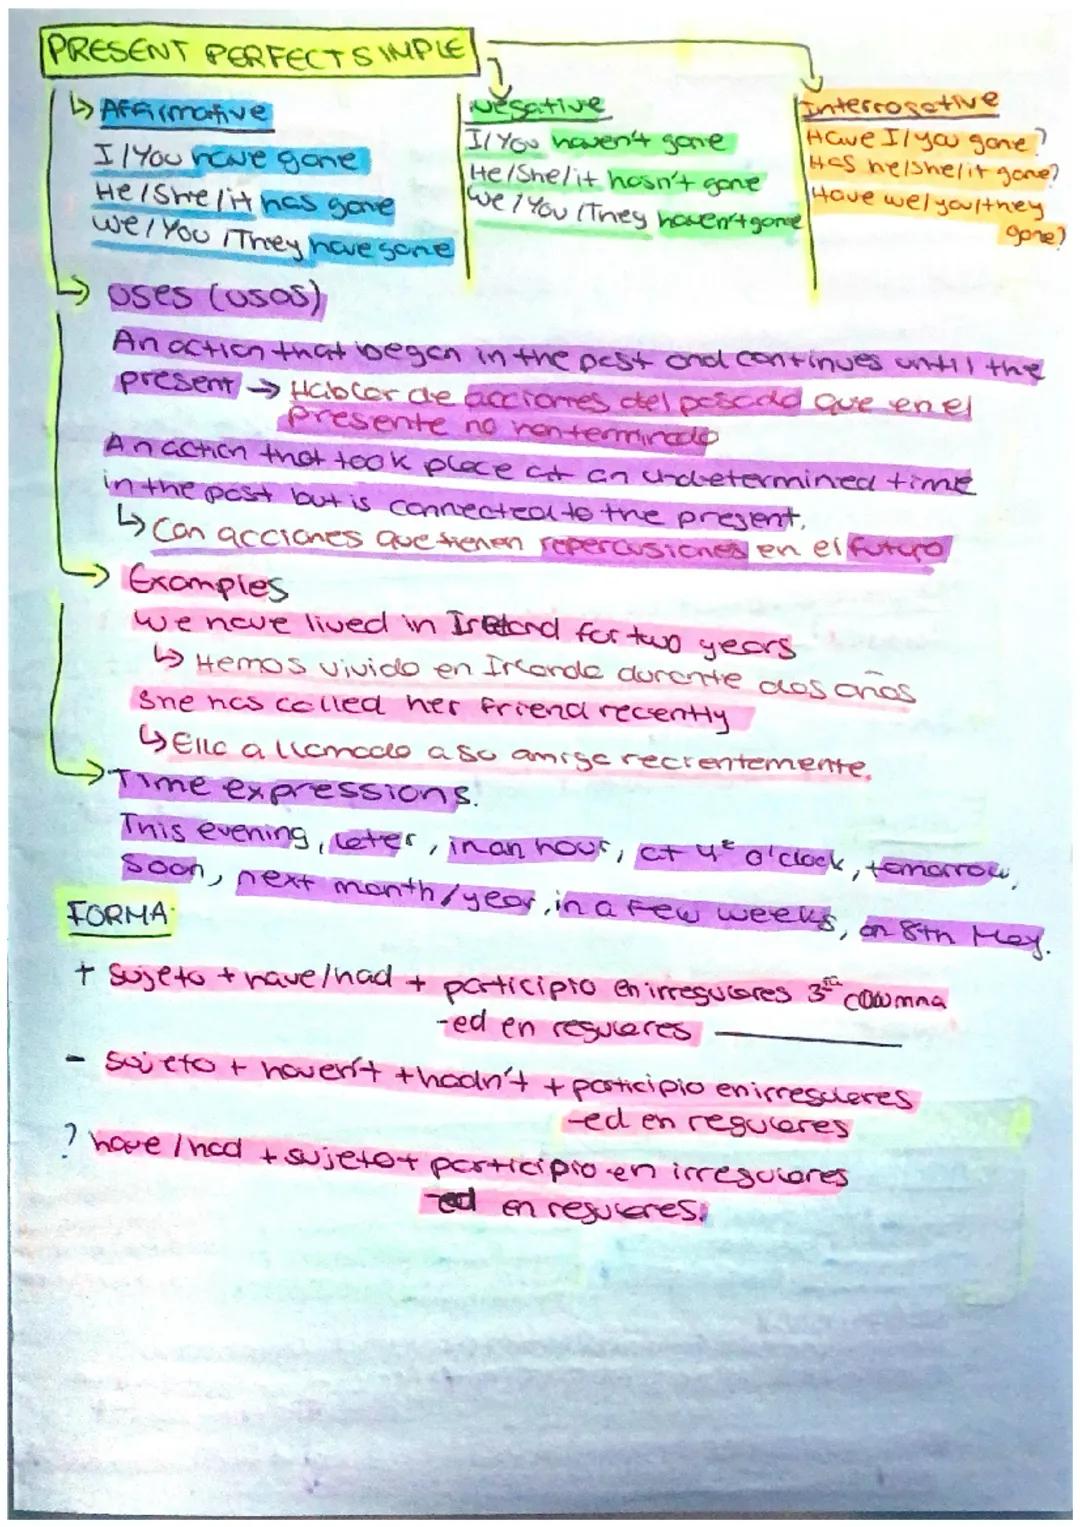 PRESENT PERFECT SIMPLE
Affirmative
I/You have gone
He/She/it has gone
We/You/They have gone
Negative
I/You haven't gone
He/She/it hasn't gone
We/You/They haven't gone
Interrogative
Have I/you gone?
Has he/she/it gone?
Have we/you/they
gone?
Uses (usos)
An action that began in the past and continues until the
present → Hablar de acciones del pasado que en el
presente no han terminado
An action that took place at an undetermined time
in the past but is connected to the present.
Con acciones que tienen repercusiones en el futuro
Examples
We have lived in Ireland for two years
Hemos vivido en Irlanda durante dos años
She has called her friend recently
Ella a llamado a su amiga recientemente.
Time expressions.
This evening, later, in an hour, at 4 o'clock, tomorrow,
soon, next month/year, in a few weeks, on 8th May.
FORMA
+ sujeto + have/had + participio en irregulares 3ra columna
-ed en regulares
- sujeto + haven't + hadn't + participio en irregulares
-ed en regulares
? have/had + sujeto + participio en irregulares
-ed en regulares.